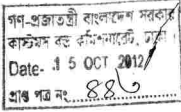 গণ-প্রজাতন্ত্রী বাংলাদেশ সরকার
কাস্টমস বন্ড কমিশনারেট, ঢাকা।
Date- 15 OCT 2012
প্রাপ্ত পত্র নং ৪৪৬